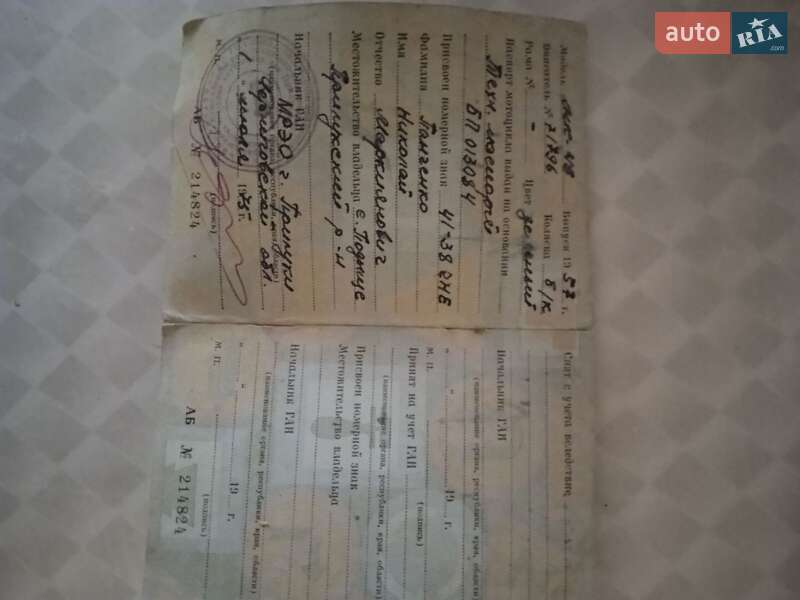 Модель М1М Выпуск 1957 г.
Двигатель № 71796 Коляска б/к.
Рама № — Цвет зеленый
Паспорт мотоцикла выдан на основании
Техн. паспорт
БП 013084
Присвоен номерной знак 41-38 ЧНБ
Фамилия Панченко
Имя Николай
Отчество Маркиянович
Местожительство владельца с.
Прилукский р-н
Начальник ГАИ
МРЭО г. Прилуки
Черниговской обл.
" 1 " июля 1975 г.
М. П. (подпись)
АБ № 214824
Снят с учета вследствие
Начальник ГАИ
(наименование органа, республики, края, области)
" " 19 г.
М. П. (подпись)
Принят на учет ГАИ
(наименование органа, республики, края, области)
Присвоен номерной знак "
Местожительство владельца
Начальник ГАИ
(наименование органа, республики, края, области)
" " 19 г.
М. П. (подпись)
АБ № 214824
auto RIA
.com